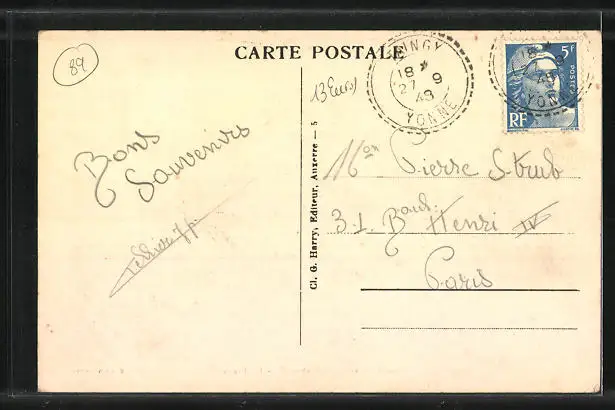 89
CARTE POSTALE
18
27 9
48
YONNE
18
5F
POSTES
YONNE
RF
13 Euros
Bons
Souvenirs
Cl. G. Harry, Editeur, Auxerre — 5
Mon Pierre Strub
31. Boul. Henri IV
Paris